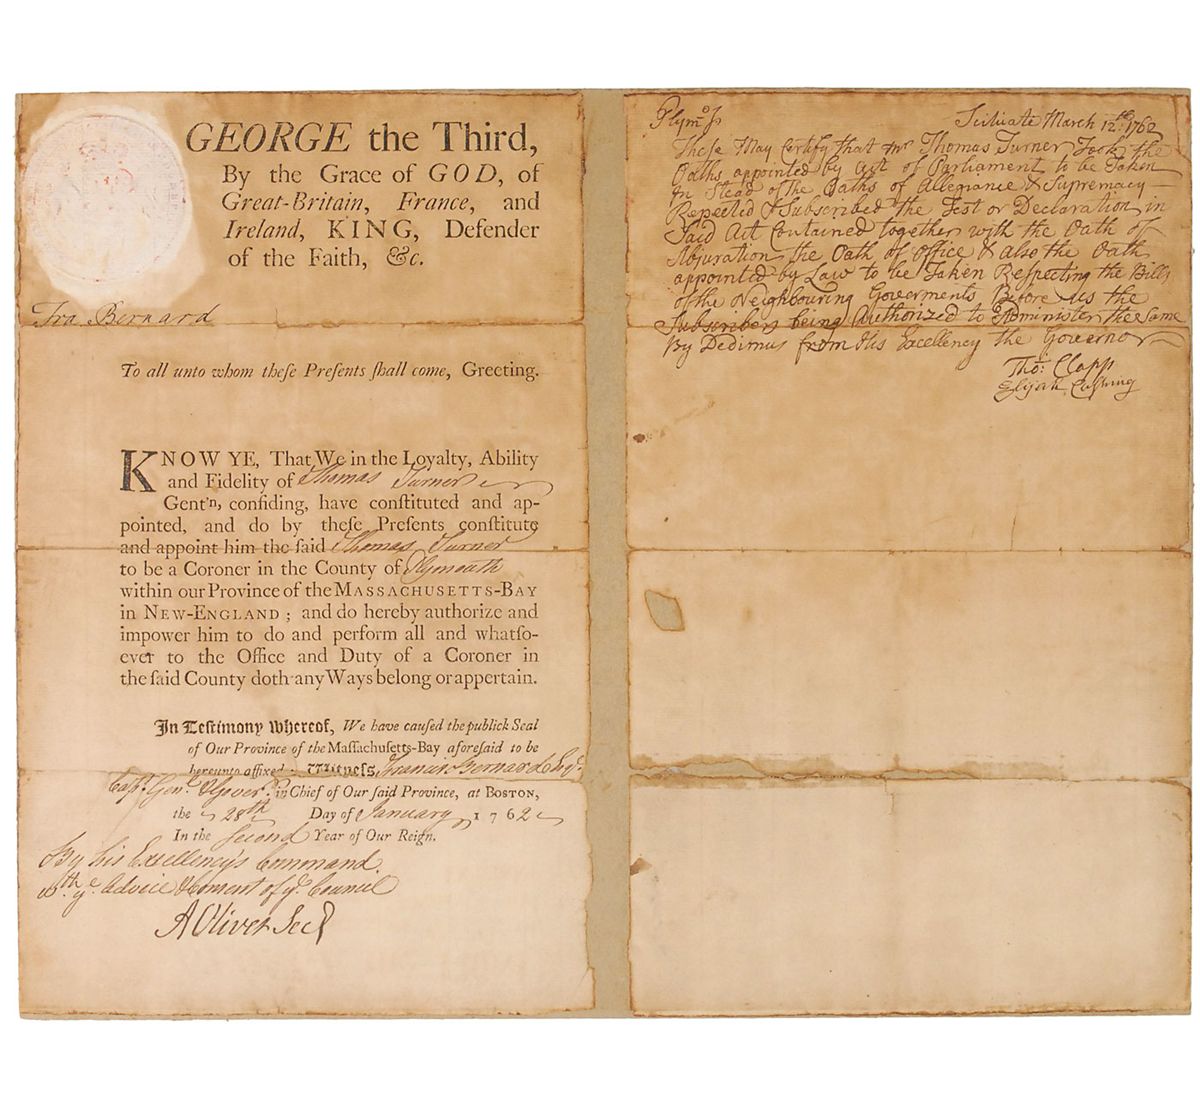 GEORGE the Third,
By the Grace of GOD, of
Great-Britain, France, and
Ireland, KING, Defender
of the Faith, &c.
Fra Bernard
To all unto whom theſe Preſents ſhall come, Greeting.
KNOW YE, That We in the Loyalty, Ability
and Fidelity of Thomas Turner
Gent'n, confiding, have conſtituted and ap-
pointed, and do by theſe Preſents conſtitute
and appoint him the ſaid Thomas Turner
to be a Coroner in the County of Plymouth
within our Province of the MASSACHUSETTS-BAY
in NEW-ENGLAND; and do hereby authorize and
impower him to do and perform all and whatſo-
ever to the Office and Duty of a Coroner in
the ſaid County doth any Ways belong or appertain.
In Teſtimony Whereof, We have cauſed the publick Seal
of Our Province of the Maſſachuſetts-Bay aforeſaid to be
hereunto affixed: Witneſs, Francis Bernard Esqr.
Capt. Genl. & Goverr. in Chief of Our ſaid Province, at BOSTON,
the 28th Day of January 1762
In the Second Year of Our Reign.
By his Excellency's Command
wth. ye. advice & Consent of ye. Council
A Oliver Secy
Plymo. Js Scituate March 12th. 1762
These May Certify that mr Thomas Turner Took the
Oaths appointed by act of Parliament to be Taken
In Stead of the Oaths of Allegiance & Supremacy
Repeeted & Subscribed the Test or Declaration in
Said Act Contained together with the Oath of
Abjuration the Oath of Office & also the Oath
appointed by Law to be Taken Respecting the Bills
of the Neighbouring Goverments Before us the
Subscribers being Authorized to Administer the Same
By Dedimus from His Excellency the Governor
Tho: Clapp
Elijah Cushing